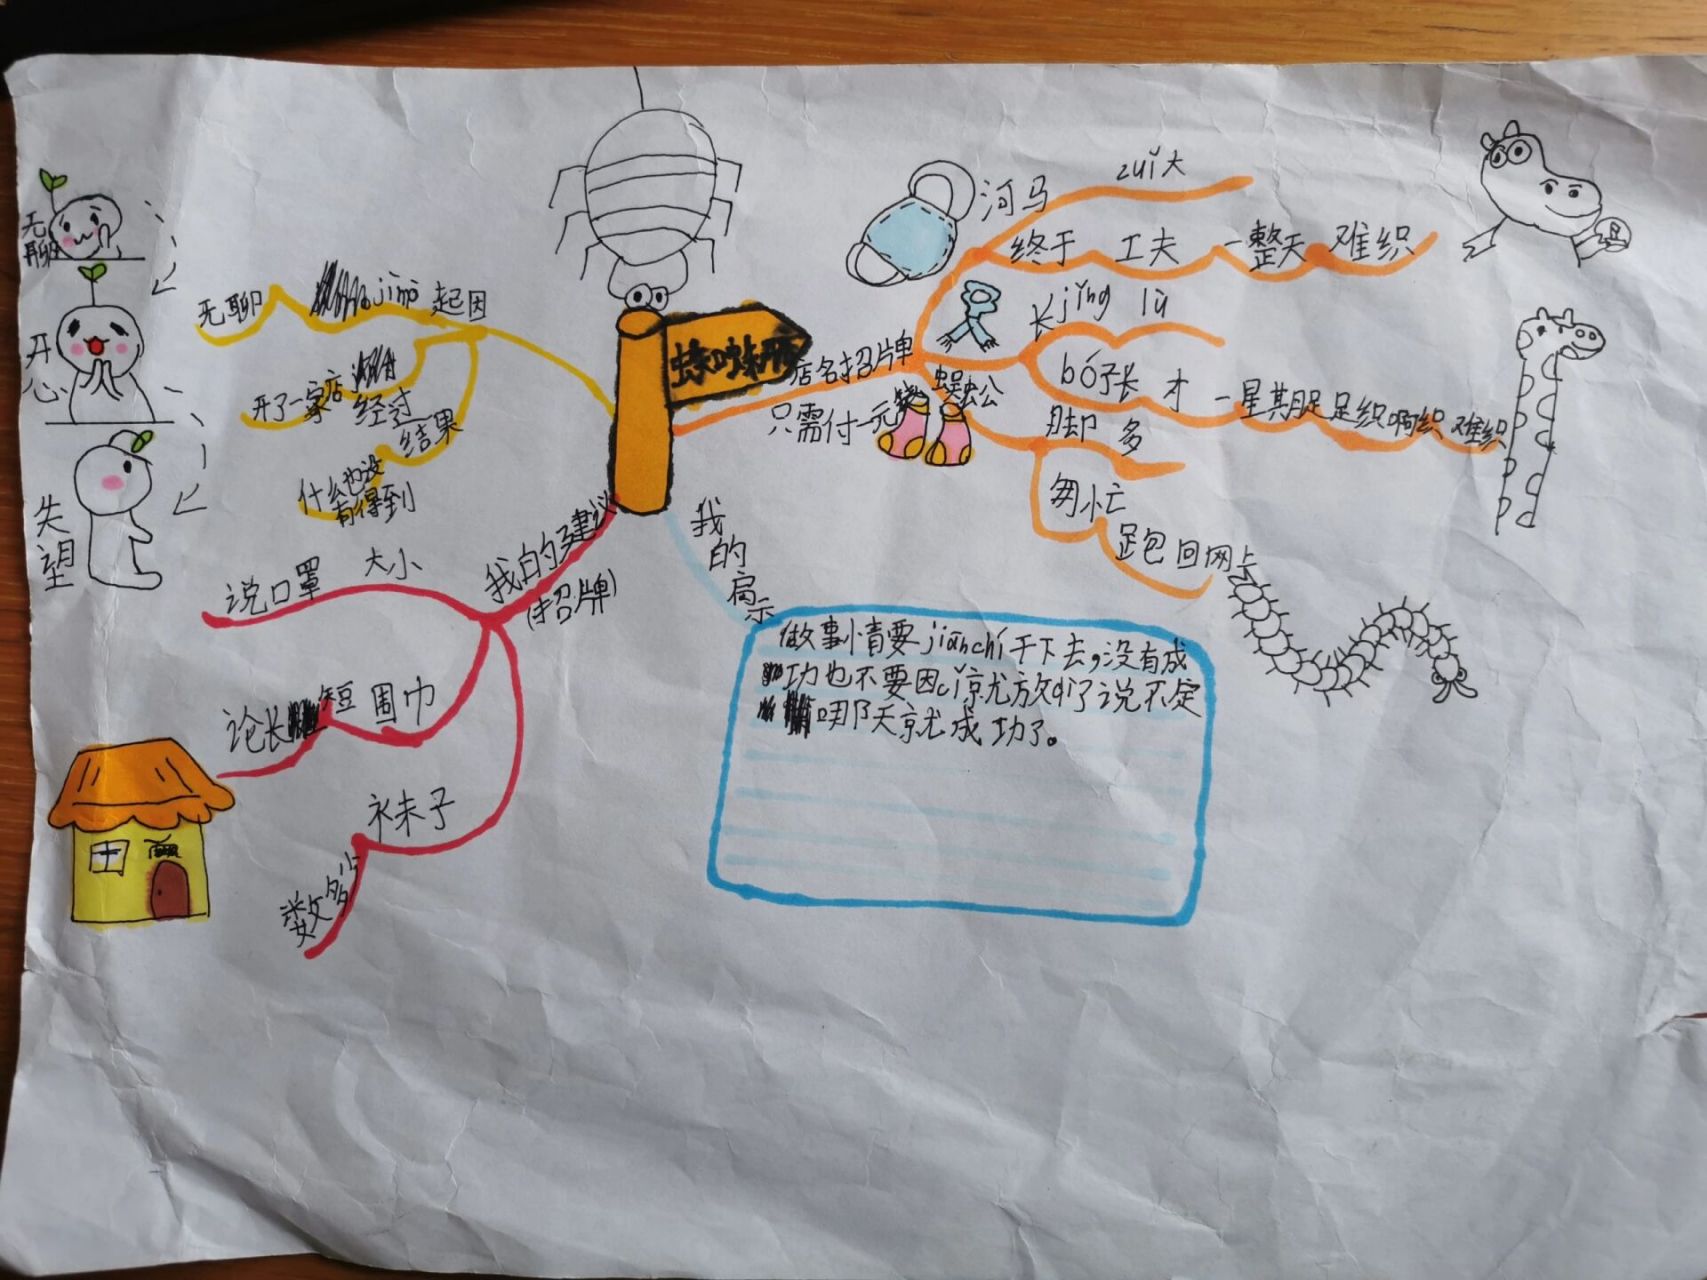 无聊
开心
失望
起因
jìmò
无聊
经过
开了一家店
结果
什么也没
有得到
店名招牌
只需付一元
河马
zuǐ大
终于 工夫 一整天 难织
长jǐng lù
bó子长 才 一星期 足足织啊织 难织
蜈蚣
脚多
匆忙
跑回网上
我的建议
(招牌)
说口罩 大小
论长短 围巾
袜子
数多少
我的启示
做事情要jiānchí干下去,没有成
功也不要因cǐ就放qì了说不定
哪天就成功了。